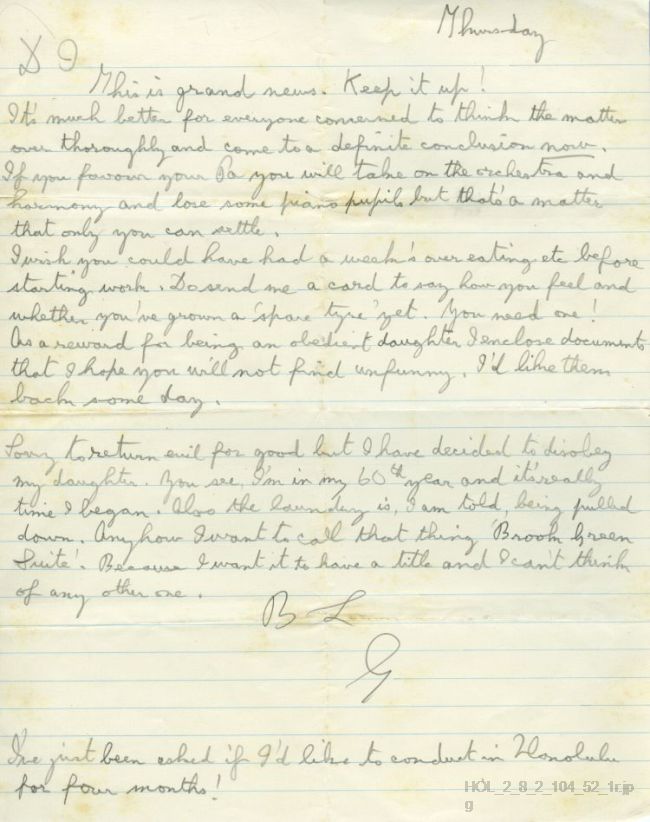 Thursday
D I
This is grand news. Keep it up!
It's much better for everyone concerned to think the matter
over thoroughly and come to a definite conclusion now.
If you favour your Pa you will take on the orchestra and
harmony and lose some piano pupils but that's a matter
that only you can settle.
I wish you could have had a week's over eating etc before
starting work. Do send me a card to say how you feel and
whether you've grown a 'spare tyre' yet. You need one!
As a reward for being an obedient daughter I enclose documents
that I hope you will not find unfunny. I'd like them
back some day.
Sorry to return evil for good but I have decided to disobey
my daughter. You see, I'm in my 60th year and it's really
time I began. Also the laundry is, I am told, being pulled
down. Anyhow I want to call that thing 'Brook Green
Suite'. Because I want it to have a title and I can't think
of any other one.
B L
G
I've just been asked if I'd like to conduct in Honolulu
for four months!
HOL_2_8_2_104_52_1r.jp
g